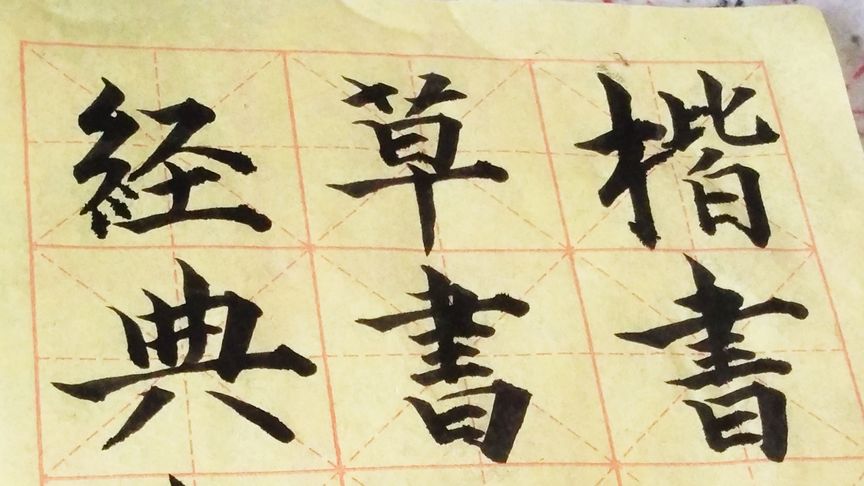 楷書
草書
経典